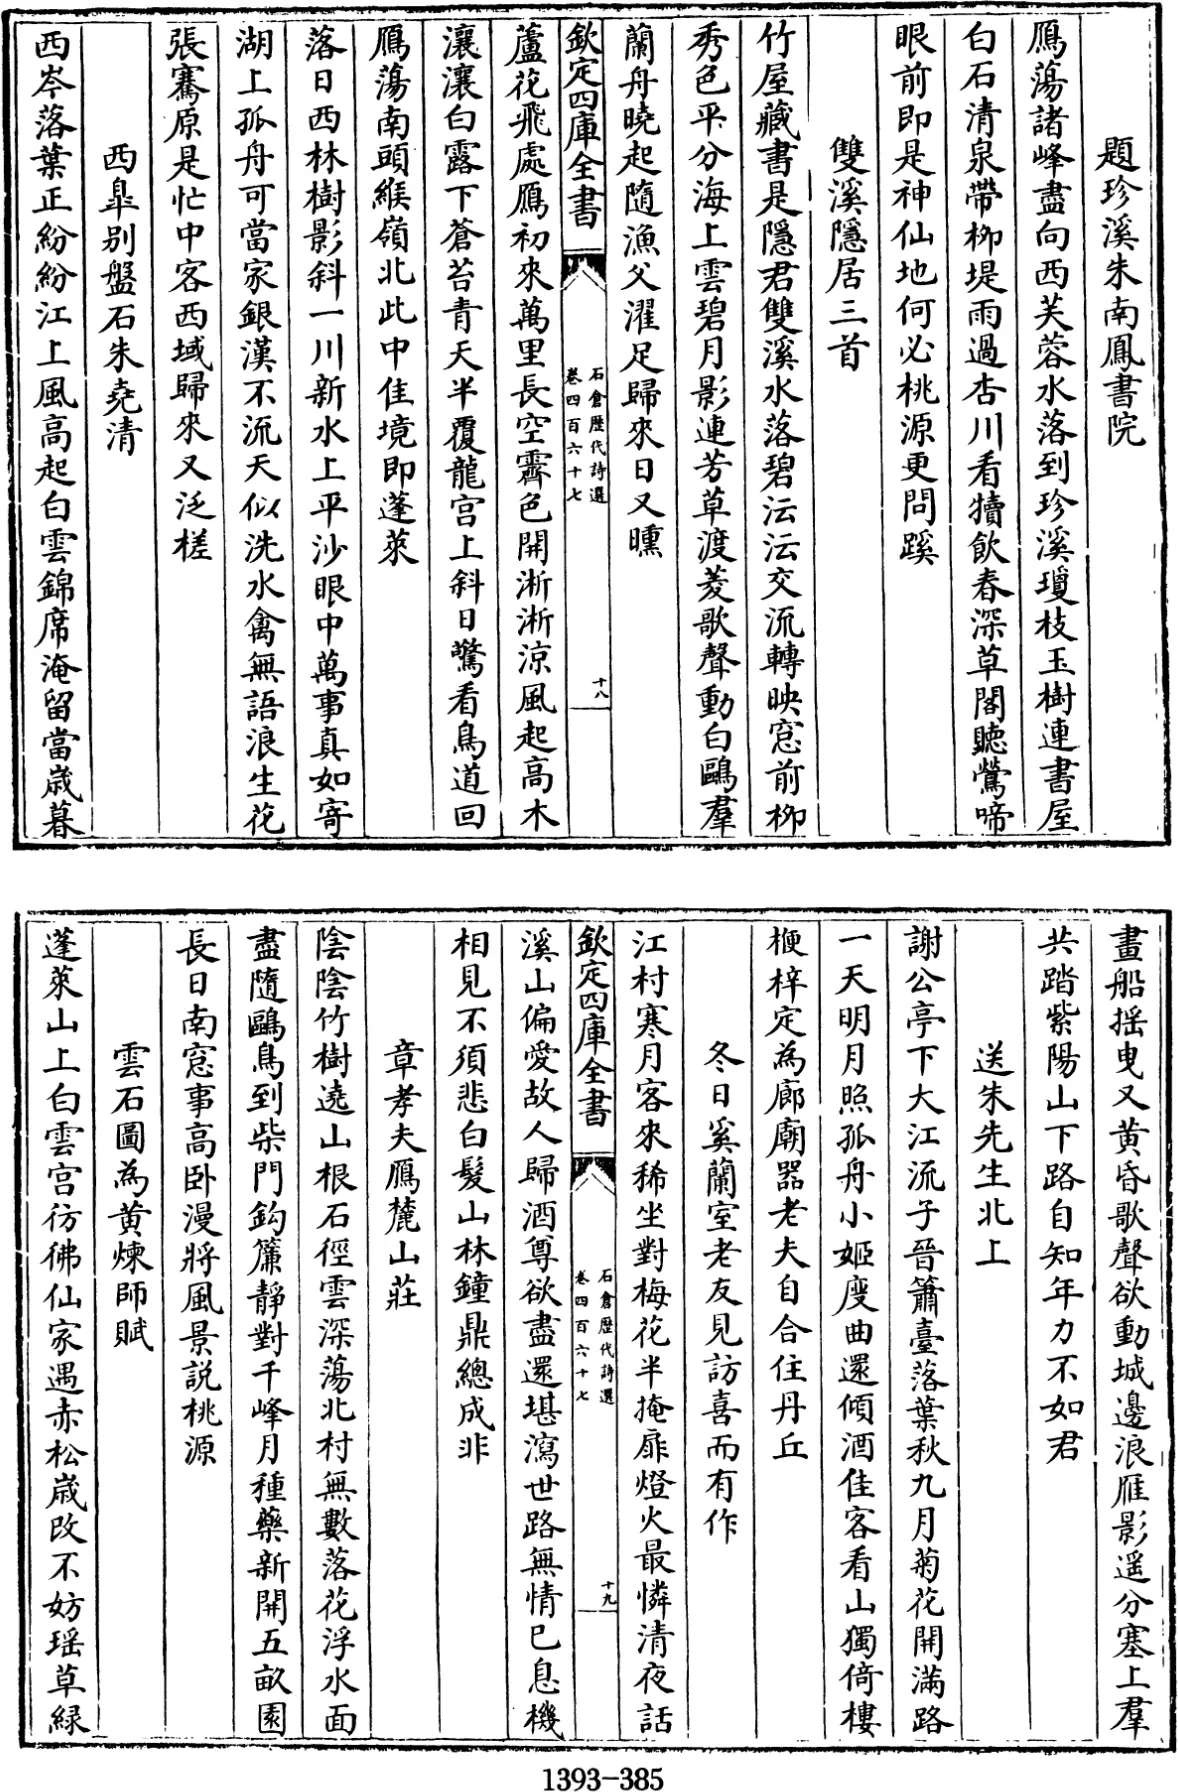 題珍溪朱南鳳書院
鴈蕩諸峰盡向西芙蓉水落到珍溪瓊枝玉樹連書屋
白石清泉帶栁堤雨過杏川看犢飲春深草閣聴鶯啼
眼前即是神仙地何必桃源更問蹊
雙溪隱居三首
竹屋藏書是隱君雙溪水落碧沄沄交流轉映窓前栁
秀色平分海上雲碧月影連芳草渡菱歌聲動白鷗羣
蘭舟曉起隨漁父濯足歸來日又曛
欽定四庫全書
石倉歴代詩選
卷四百六十七
十八
蘆花飛處鴈初來萬里長空霽色開淅淅涼風起高木
瀼瀼白露下蒼苔青天半覆龍宫上斜日驚看鳥道回
鴈蕩南頭緱嶺北此中佳境即蓬萊
落日西林樹影斜一川新水上平沙眼中萬事真如寄
湖上孤舟可當家銀漢不流天似洗水禽無語浪生花
張騫原是忙中客西域歸來又泛槎
西臯别盤石朱堯清
西岑落葉正紛紛江上風高起白雲錦席淹留當嵗暮
畫船揺曳又黄昏歌聲欲動城邊浪雁影遥分塞上羣
共踏紫陽山下路自知年力不如君
送朱先生北上
謝公亭下大江流子晉簫臺落葉秋九月菊花開滿路
一天明月照孤舟小姬度曲還傾酒佳客看山獨倚樓
楩梓定為廊廟器老夫自合住丹丘
冬日奚蘭室老友見訪喜而有作
江村寒月客來稀坐對梅花半掩扉燈火最憐清夜話
欽定四庫全書
石倉歴代詩選
卷四百六十七
十九
溪山偏愛故人歸酒尊欲盡還堪瀉世路無情已息機
相見不須悲白髮山林鐘鼎總成非
章孝夫鴈麓山莊
陰陰竹樹遶山根石徑雲深蕩北村無數落花浮水面
盡隨鷗鳥到柴門鈎簾靜對千峰月種藥新開五畝園
長日南窓事高卧漫將風景説桃源
雲石圖為黄煉師賦
蓬萊山上白雲宫彷彿仙家遇赤松嵗改不妨瑶草緑
1393-385